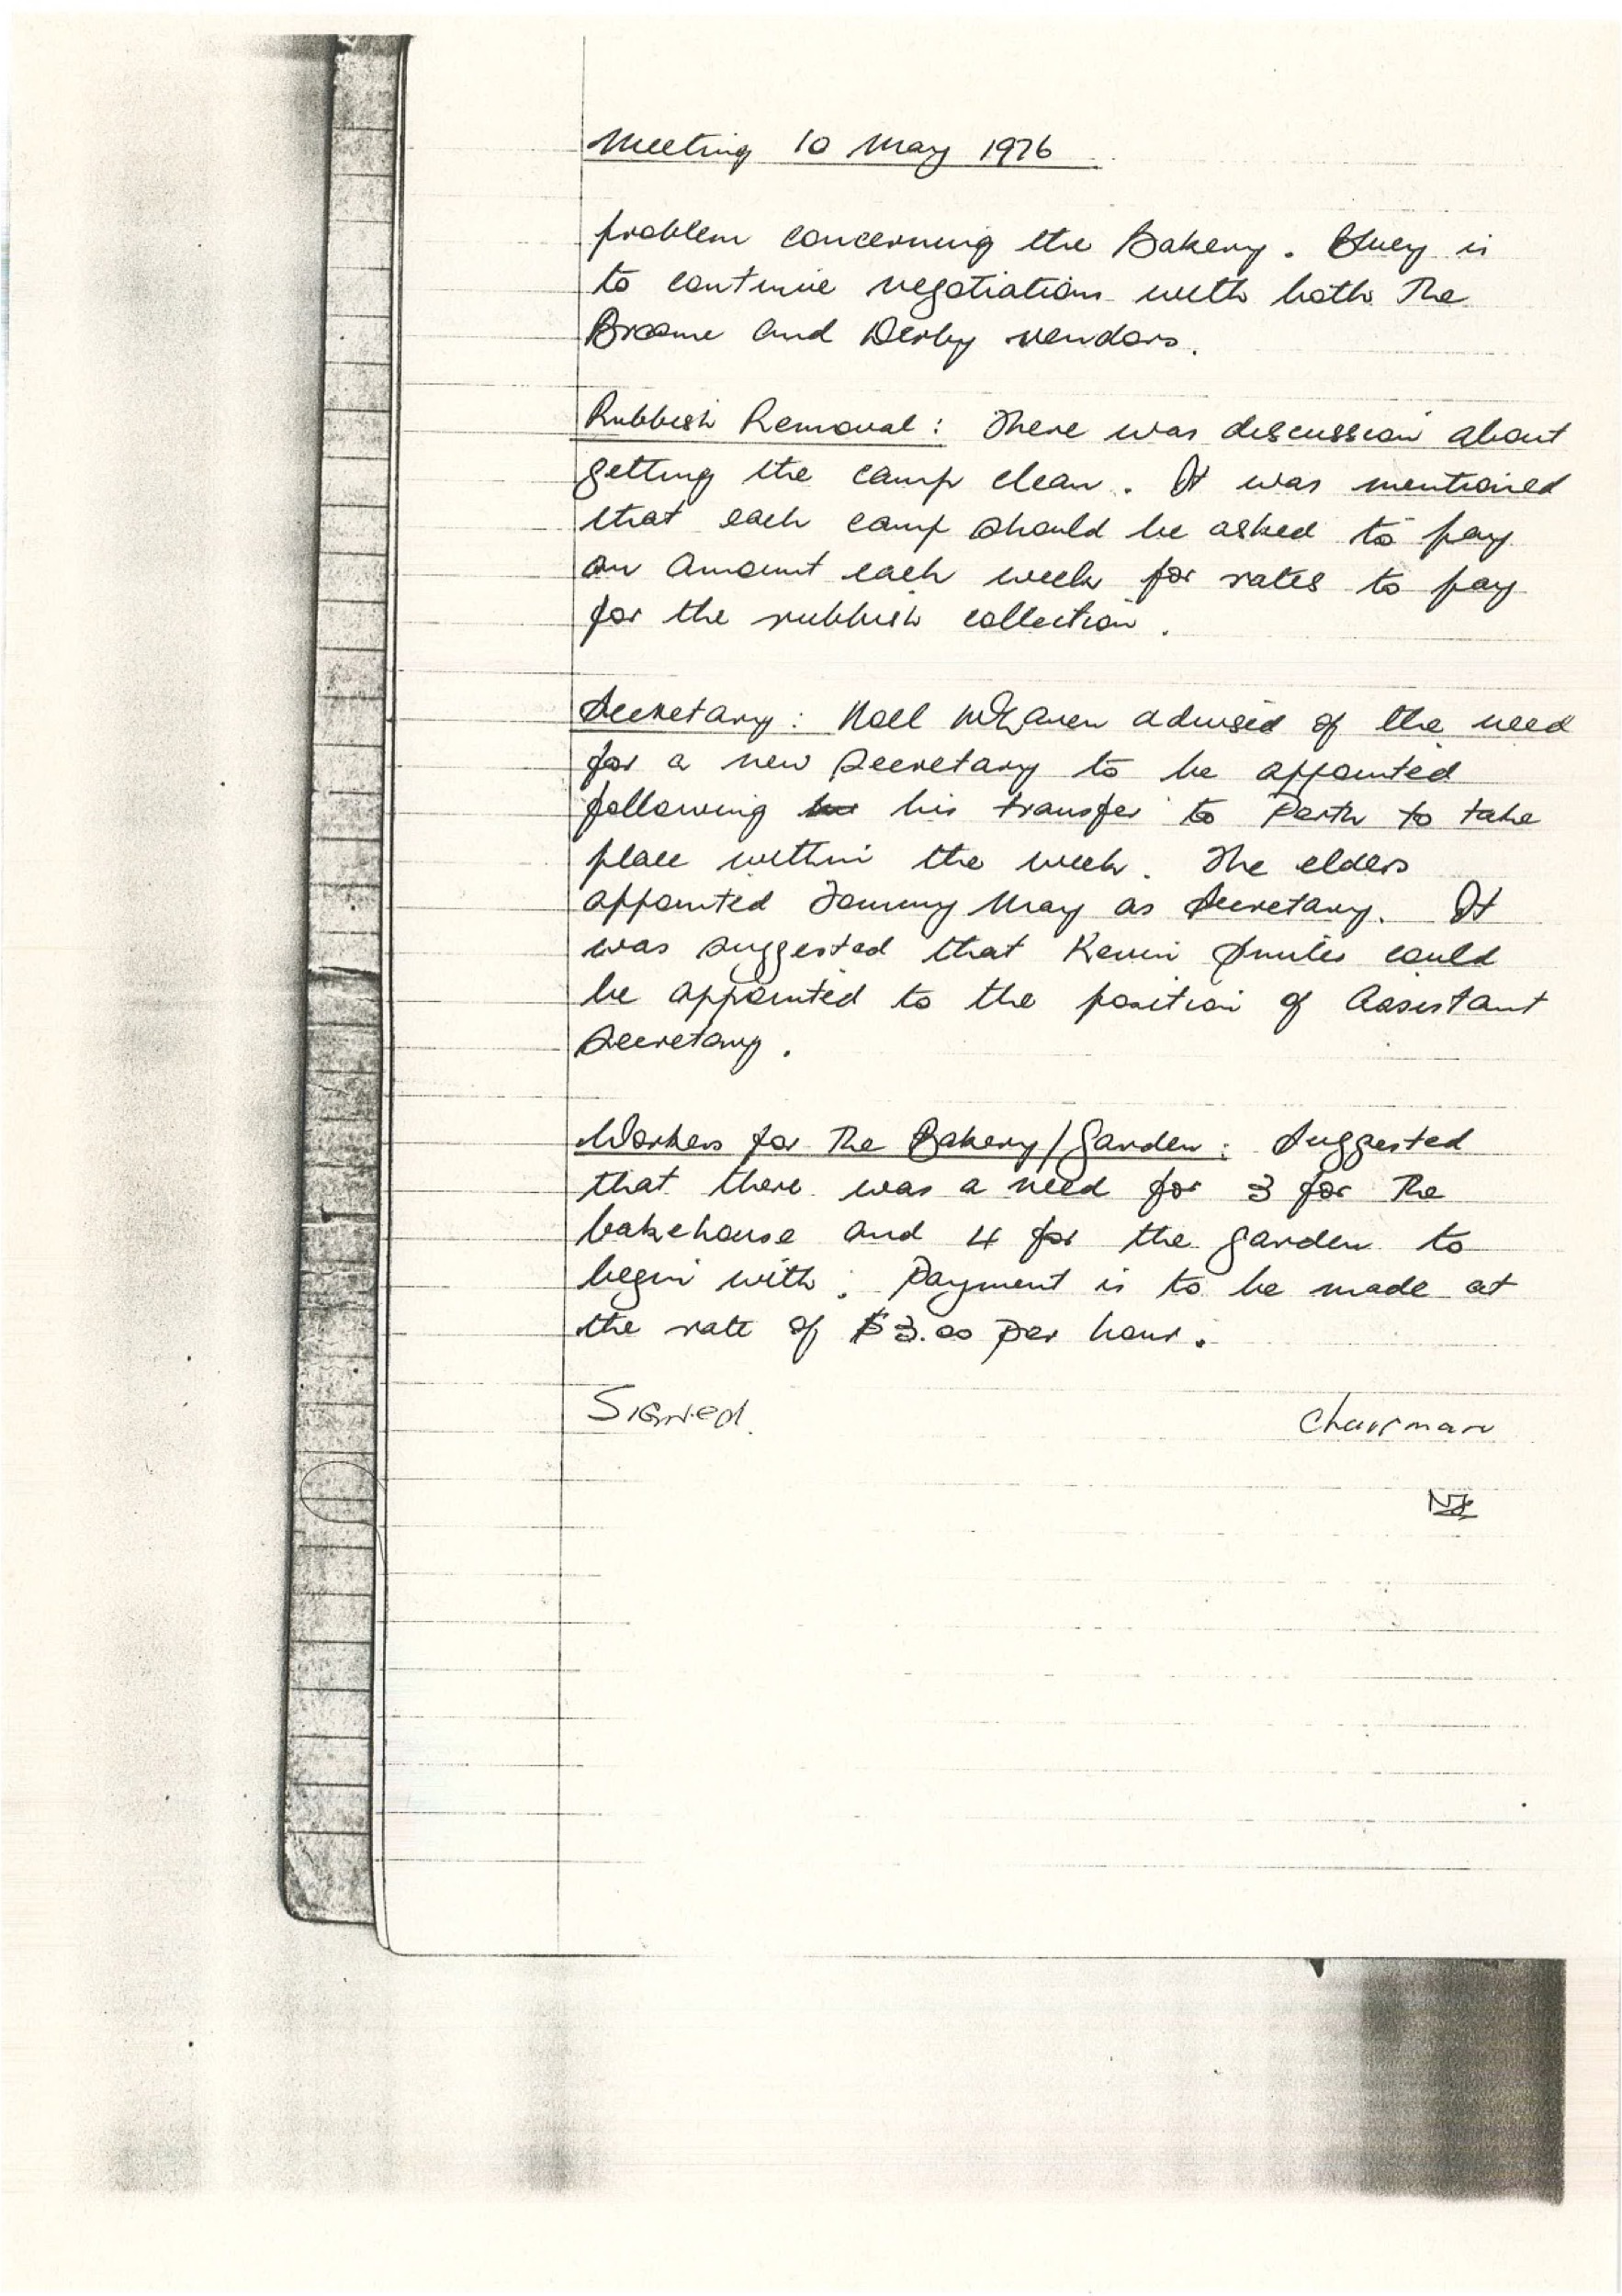 Meeting 10 May 1976
problem concerning the Bakery. Huey is
to continue negotiations with both The
Broome and Derby vendors.
Rubbish Removal: There was discussion about
getting the camp clean. It was mentioned
that each camp should be asked to pay
an amount each week for rates to pay
for the rubbish collection.
Secretary: Noel advised of the need
for a new Secretary to be appointed
following his transfer to Perth to take
place within the week. The elders
appointed Tommy May as Secretary. It
was suggested that Kevin could
be appointed to the position of Assistant
Secretary.
Workers for The Bakery/Garden: Suggested
that there was a need for 3 for The
bakehouse and 4 for the garden to
begin with. Payment is to be made at
the rate of $3.00 per hour.
Signed. Chairman